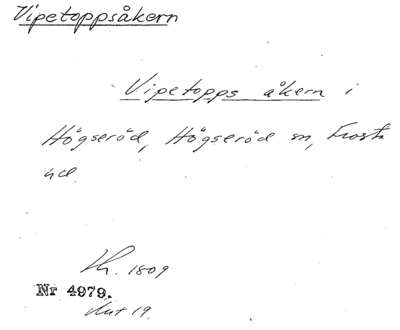 Vipetoppsåkern
Vipetopps åkern i
Högseröd, Högseröd sn, Frosta
hd.
1809
Nr 4979.
Aut 19.